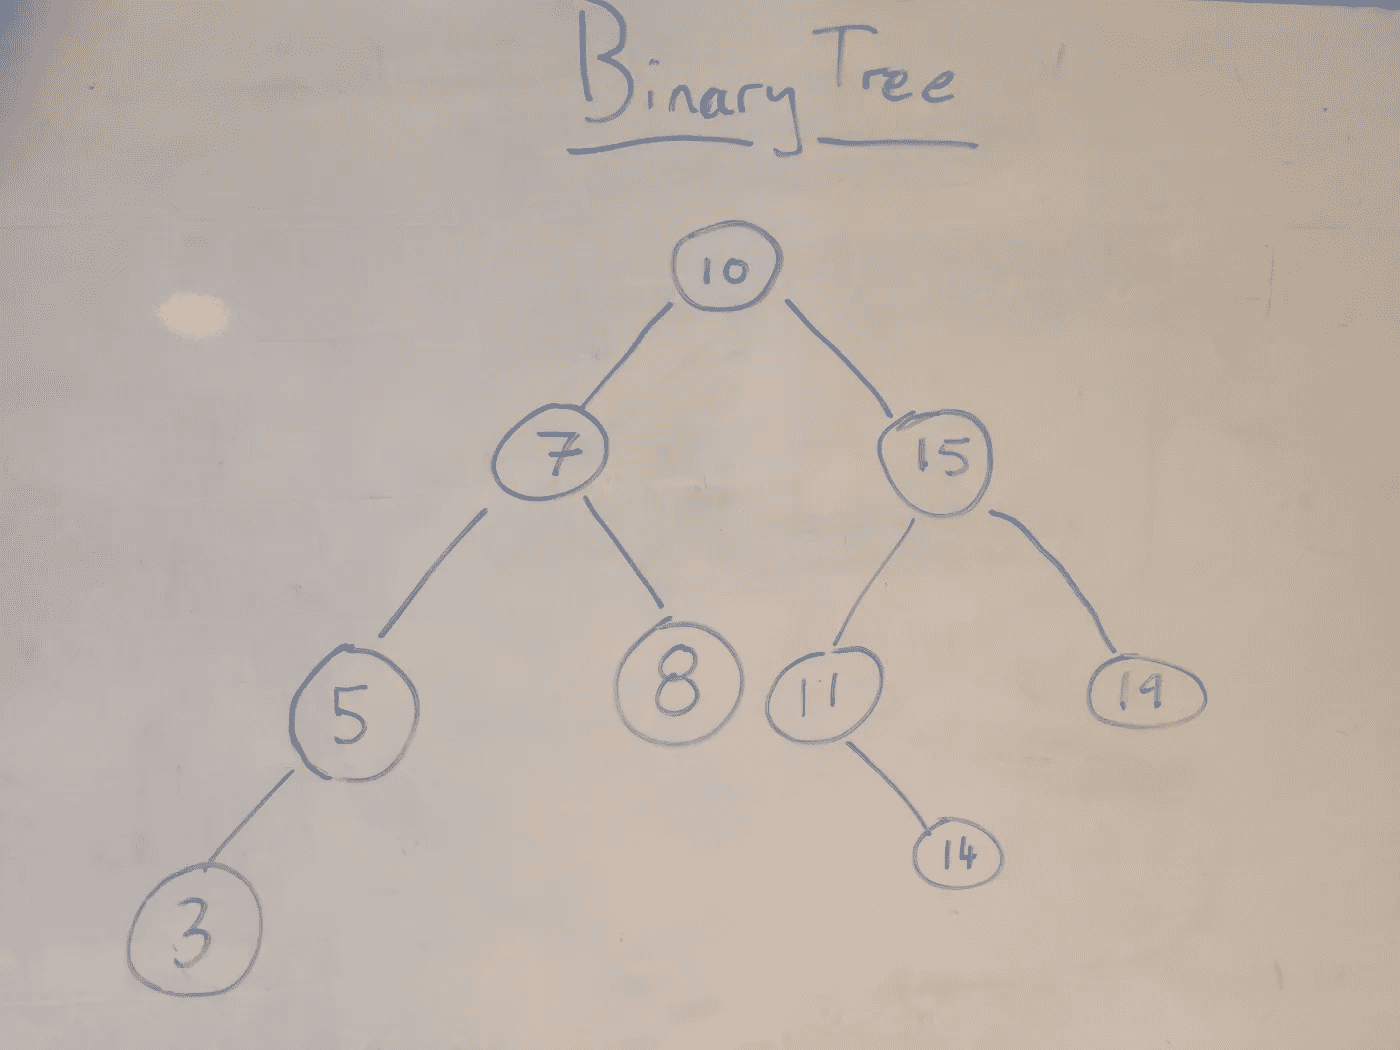 Binary Tree
10
7 15
5 8 11 19
14
3